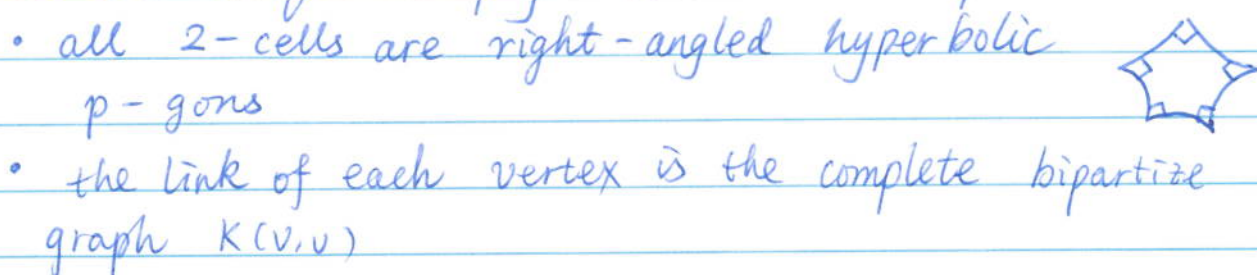 • all 2-cells are right-angled hyperbolic
p-gons
• the link of each vertex is the complete bipartize
graph K(v,v)